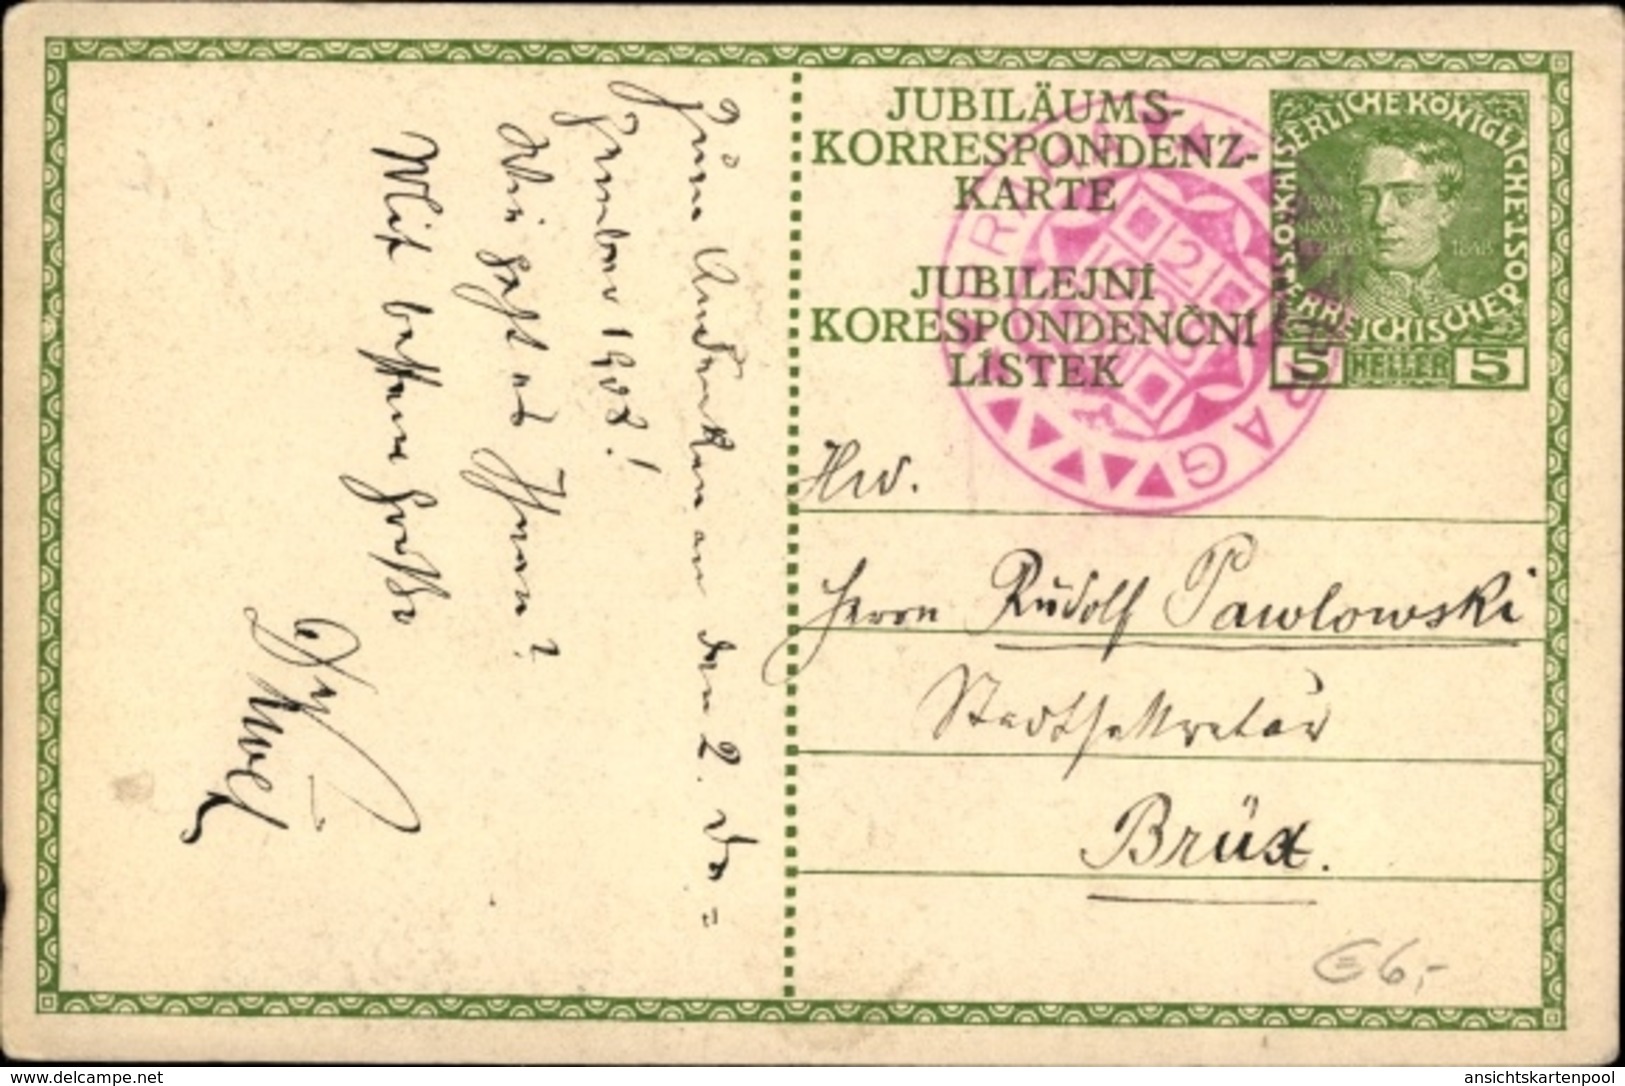 JUBILÄUMS-
KORRESPONDENZ-
KARTE
JUBILEJNÍ
KORESPONDENČNÍ
LÍSTEK
KAISERLICHE KÖNIGLICHE ÖSTERREICHISCHE POST
1848
5 HELLER 5
PRAG
Zum Andenken an den 2. De=
zember 1908!
Wie geht es Ihnen?
Mit besten Grüßen
Hw.
Herrn Rudolf Pawlowski
Stadtsekretär
Brüx.
€ 6,-
Delcampe.net
ansichtskartenpool